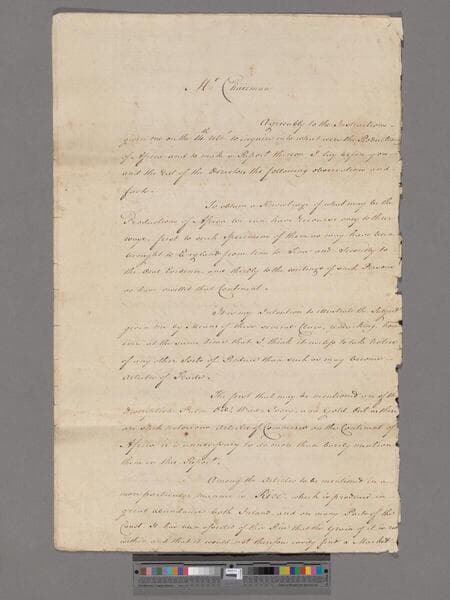 Mr Chairman
Agreeably to the Instructions
given me on the 14th ulto to inquire into what were the Productions
of Africa and to make a Report thereon I lay before you
and the rest of the Directors the following observations and
facts.
To obtain a Knowledge of what may be the
Productions of Africa we can have recourse only to three
ways, first to such Specimens of them as may have been
brought to England from time to Time and Secondly to
the Oral Evidence, and thirdly to the writings of such Persons
as have visited that Continent.
It is my Intention to illustrate the Subject
given me by Means of these several Classes, remarking, how
ever at the same time that I think it useless to take Notice
of any other Sorts of Produce than such as may become
Articles of Trade.
The first that may be mentioned are of this
Description. Ivory and Gold but as these
are such notorious Articles of Commerce on the Continent of
Africa it is unnecessary to do more than barely mention
them in this Report.
Among the Articles to be mentioned in a
more particular manner is Rice, which is produced in
great abundance both Inland and on many Parts of the
Coast. It has been objected of this Rice that the Grain of it is red
within and that it would not therefore find a Market